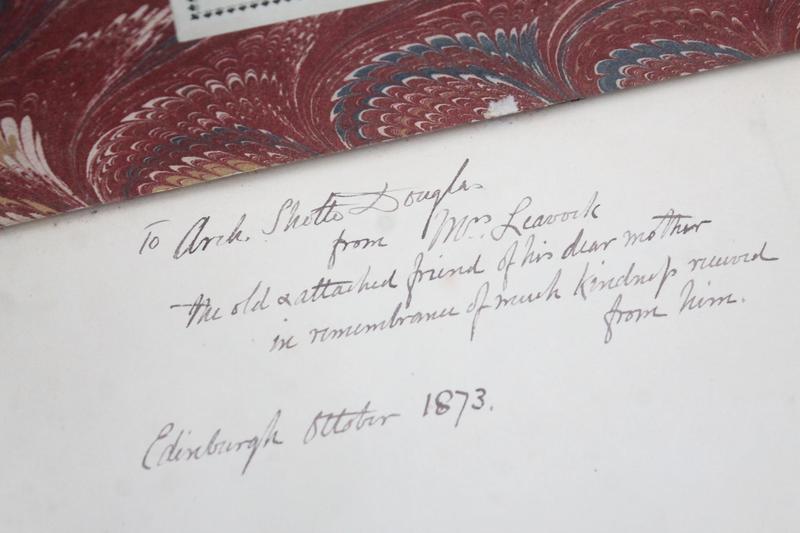 To Arch. Sholto Douglas
from Mrs Leavock
the old & attached friend of his dear mother
in remembrance of much kindness received
from him.
Edinburgh October 1873.